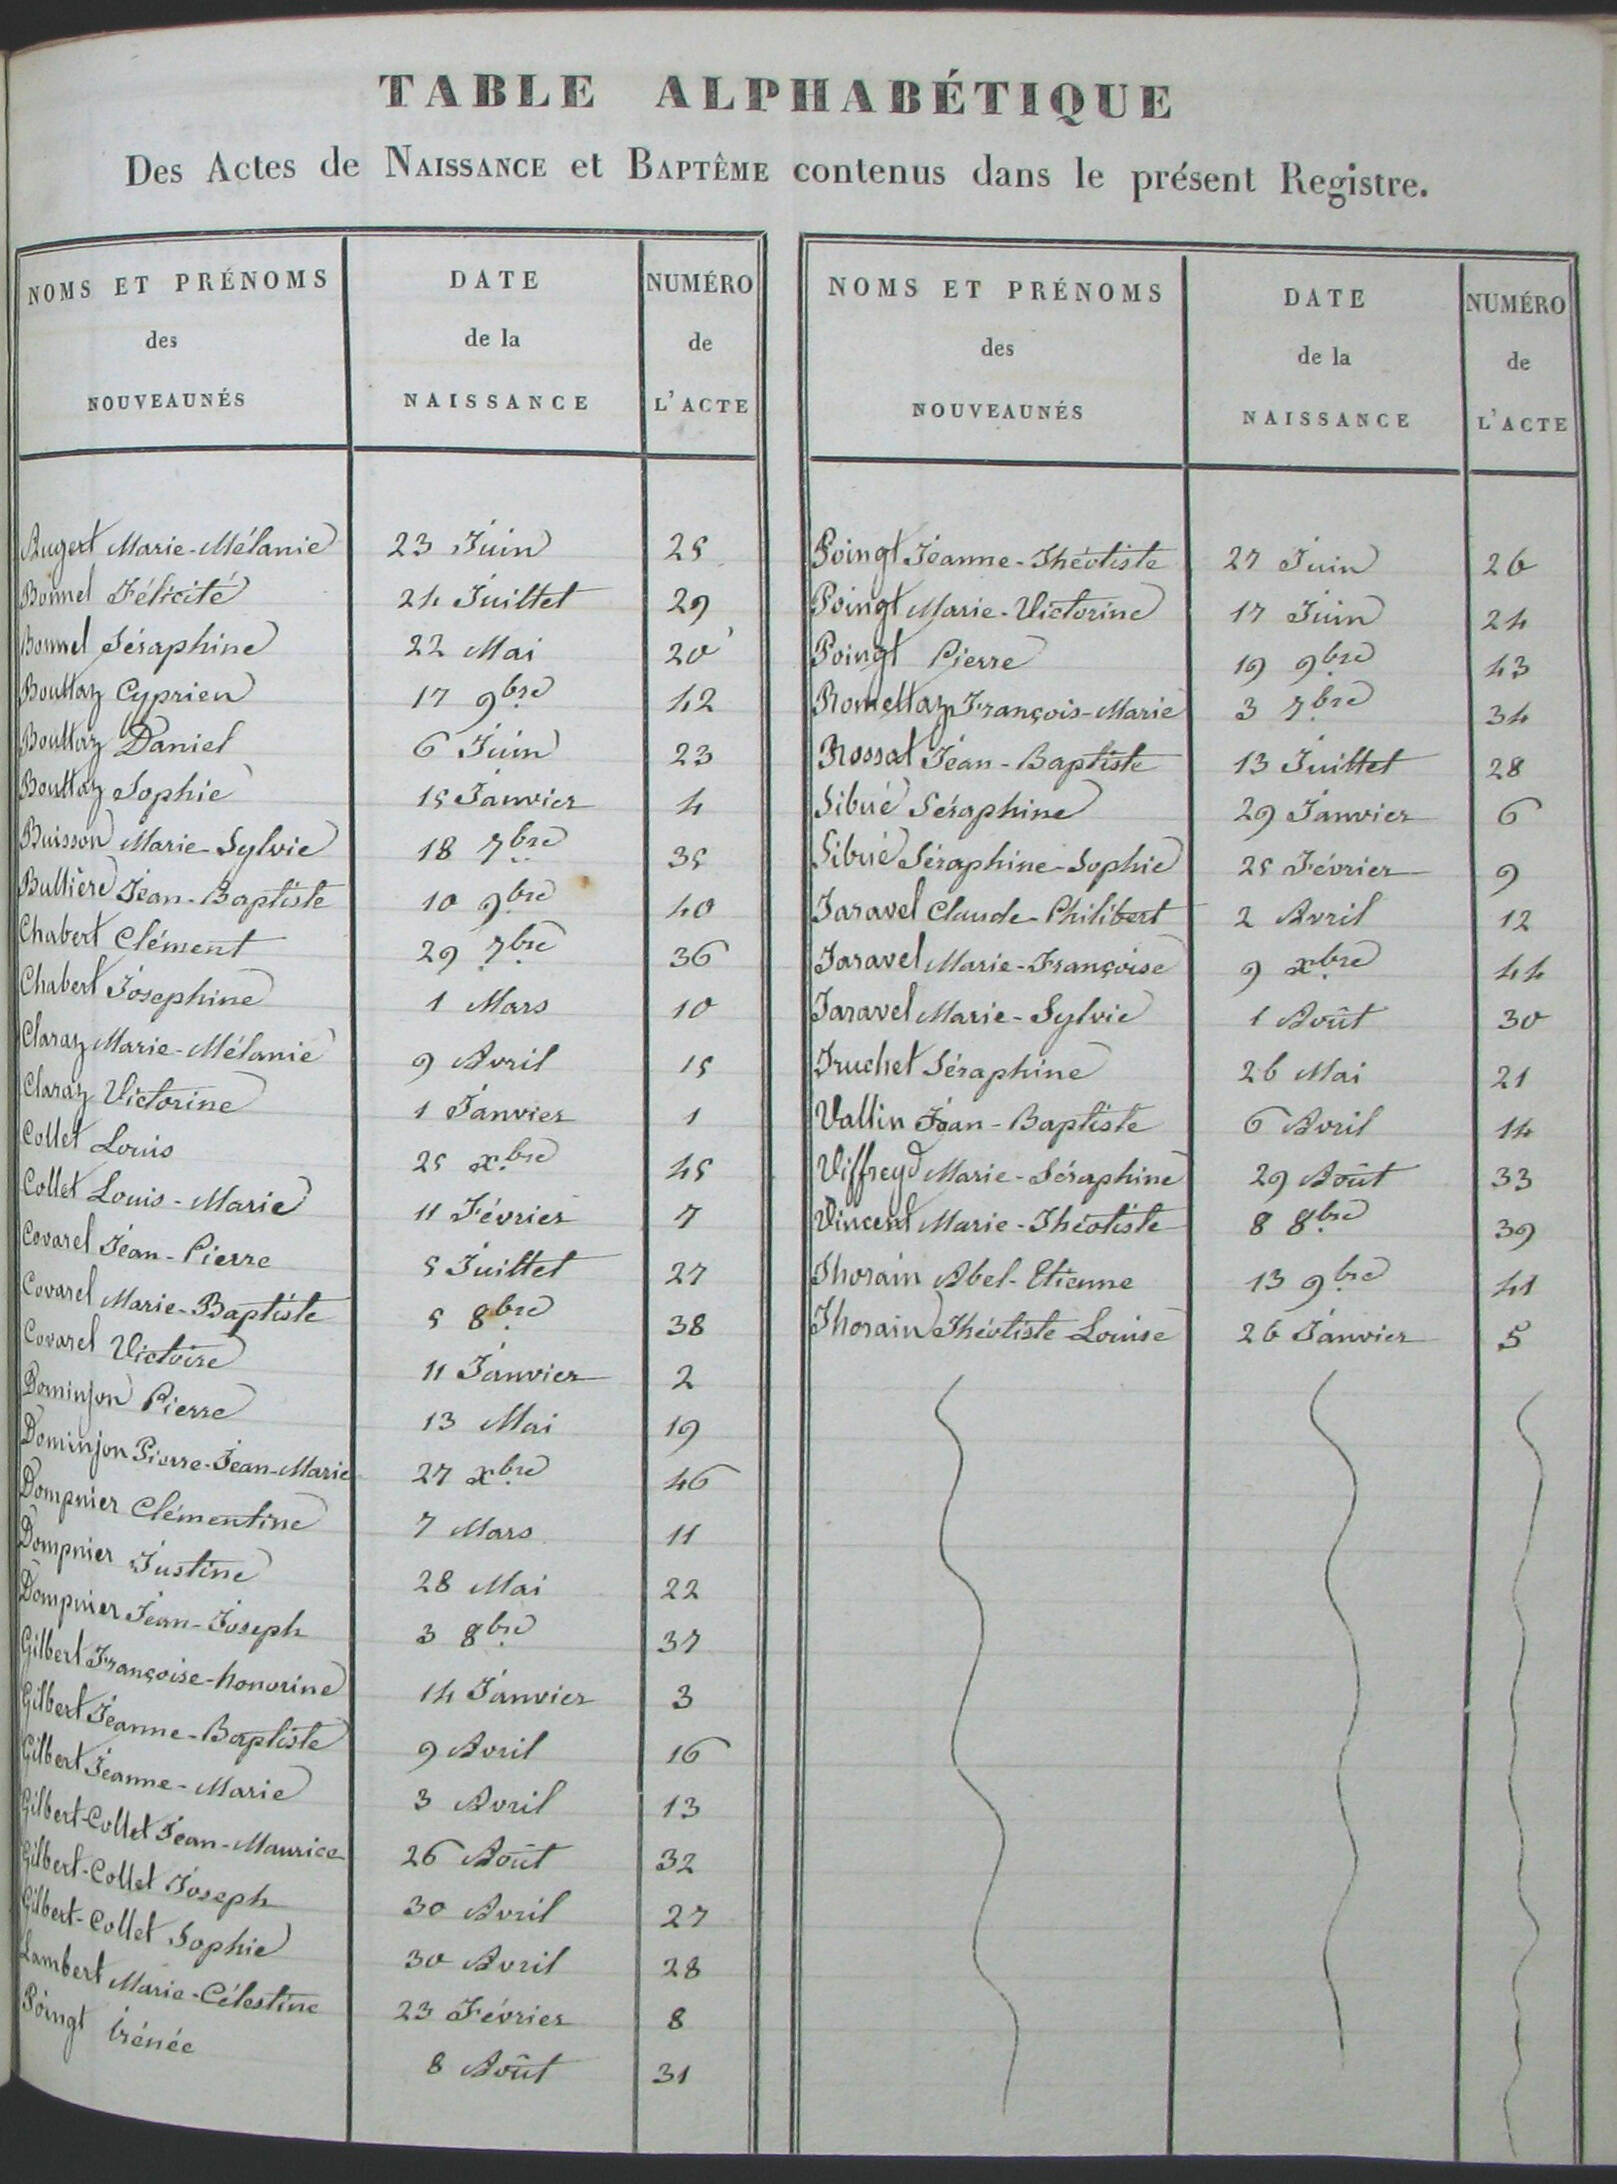 TABLE ALPHABÉTIQUE
Des Actes de NAISSANCE et BAPTÊME contenus dans le présent Registre.
NOMS ET PRÉNOMS
des
NOUVEAUNÉS
DATE
de la
NAISSANCE
NUMÉRO
de
L'ACTE
Augert Marie-Mélanie 23 Juin 25
Bonnel Félicité 24 Juillet 29
Bonnel Séraphine 22 Mai 20
Boultaz Cyprien 17 9bre 42
Boultaz Daniel 6 Juin 23
Boultaz Sophie 15 Janvier 4
Buisson Marie-Sylvie 18 7bre 35
Bullière Jean-Baptiste 10 9bre 40
Chabert Clément 29 7bre 36
Chabert Josephine 1 Mars 10
Claraz Marie-Mélanie 9 Avril 15
Claraz Victorine 1 Janvier 1
Collet Louis 25 xbre 45
Collet Louis-Marie 11 Février 7
Covarel Jean-Pierre 5 Juillet 27
Covarel Marie-Baptiste 5 8bre 38
Covarel Victoire 11 Janvier 2
Dominjon Pierre 13 Mai 19
Dominjon Pierre-Jean-Marie 27 xbre 46
Dompnier Clémentine 7 Mars 11
Dompnier Justine 28 Mai 22
Dompnier Jean-Joseph 3 8bre 37
Gilbert Françoise-honorine 14 Janvier 3
Gilbert Jeanne-Baptiste 9 Avril 16
Gilbert Jeanne-Marie 3 Avril 13
Gilbert-Collet Jean-Maurice 26 Août 32
Gilbert-Collet Joseph 30 Avril 27
Gilbert-Collet Sophie 30 Avril 28
Lambert Marie-Célestine 23 Février 8
Poingt Irénée 8 Août 31
NOMS ET PRÉNOMS
des
NOUVEAUNÉS
DATE
de la
NAISSANCE
NUMÉRO
de
L'ACTE
Poingt Jeanne-Théotiste 27 Juin 26
Poingt Marie-Victorine 17 Juin 24
Poingt Pierre 19 9bre 43
Romettaz François-Marie 3 7bre 34
Rossat Jean-Baptiste 13 Juillet 28
Sibué Séraphine 29 Janvier 6
Sibué Séraphine-Sophie 25 Février 9
Taravel Claude-Philibert 2 Avril 12
Taravel Marie-Françoise 9 xbre 44
Taravel Marie-Sylvie 1 Août 30
Truchet Séraphine 26 Mai 21
Vallin Jean-Baptiste 6 Avril 14
Viffreyd Marie-Séraphine 29 Août 33
Vincent Marie-Théotiste 8 8bre 39
Thorain Abel-Etienne 13 9bre 41
Thorain Théotiste-Louise 26 Janvier 5